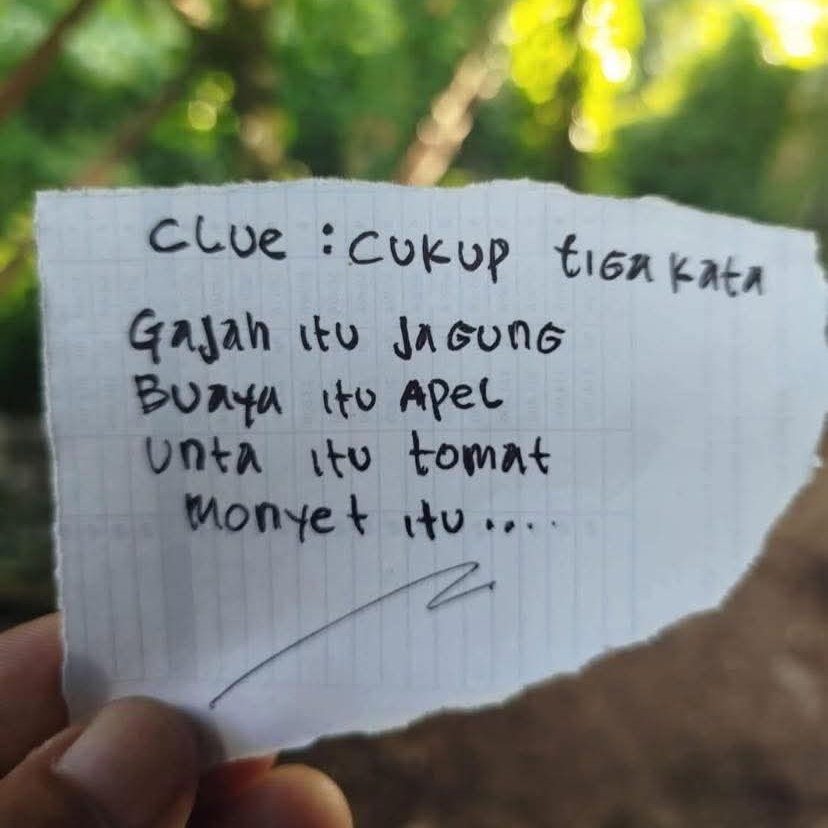 CLUE : CUKUP tIGA KAtA
GAJAH itu JAGUNG
BUAYA itu APEL
UNtA itu tomAt
MONYEt itu....